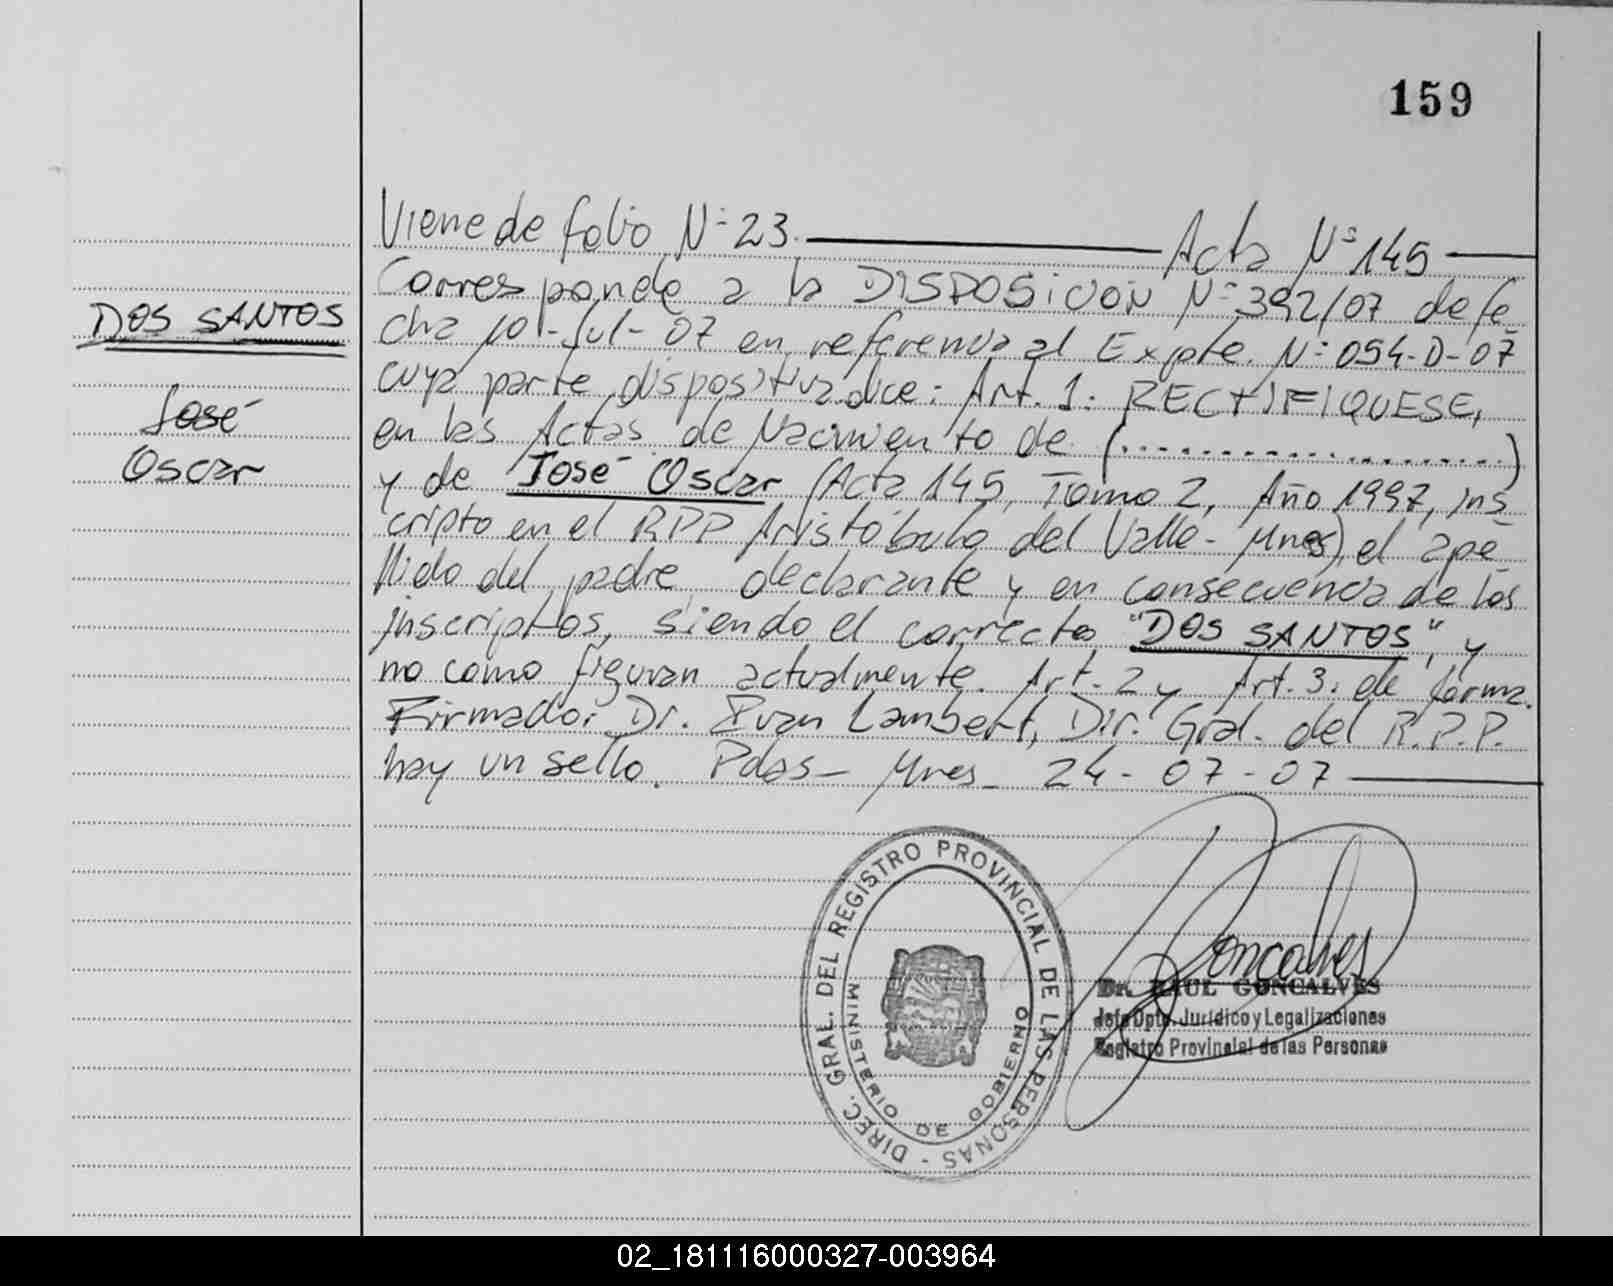 159
Viene de folio Nº 23. Acta Nº 145
Corresponde a la DISPOSICION Nº 392/07 de fe-
cha 10-Jul-07 en referencia al Expte. Nº 054-D-07
cuya parte dispositiva dice: Art. 1: RECTIFIQUESE,
en las Actas de Nacimiento de (....................)
y de José Oscar (Acta 145, Tomo 2, Año 1997, ins-
cripto en el RPP Aristóbulo del Valle - Mnes) el ape-
llido del padre declarante y en consecuencia de los
inscriptos, siendo el correcto "DOS SANTOS", y
no como figuran actualmente. Art. 2 y Art. 3: de forma.
Firmado: Dr. Ivan Lambert, Dir. Gral. del R.P.P.
hay un sello. Pdas - Mnes - 24-07-07
DOS SANTOS
José
Oscar
DIREC. GRAL. DEL REGISTRO PROVINCIAL DE LAS PERSONAS -
MINISTERIO DE GOBIERNO
Goncalves
Dr. RAUL GONCALVES
Jefe Dpto. Jurídico y Legalizaciones
Registro Provincial de las Personas
02_181116000327-003964